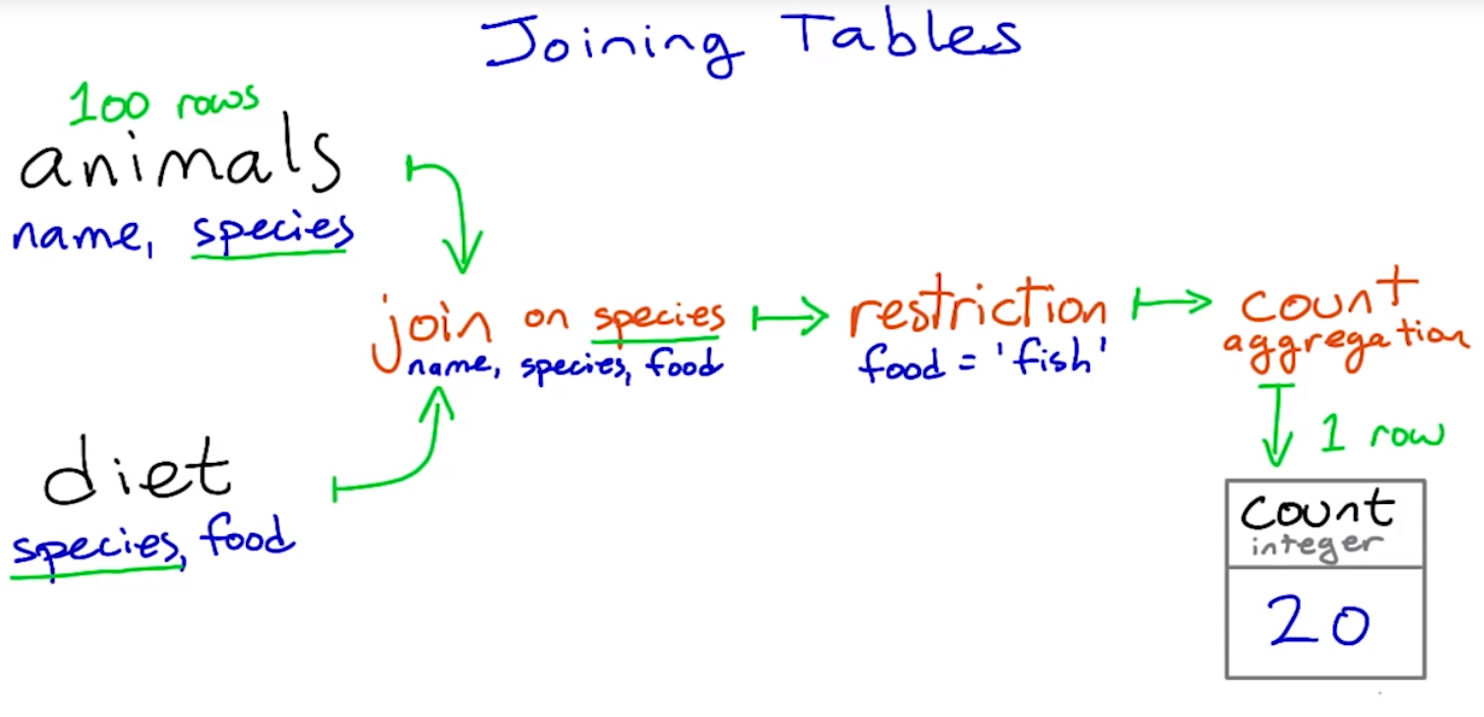 Joining Tables
100 rows
animals
name, species
join on species
name, species, food
diet
species, food
restriction
food = 'fish'
count
aggregation
1 row
count
integer
20